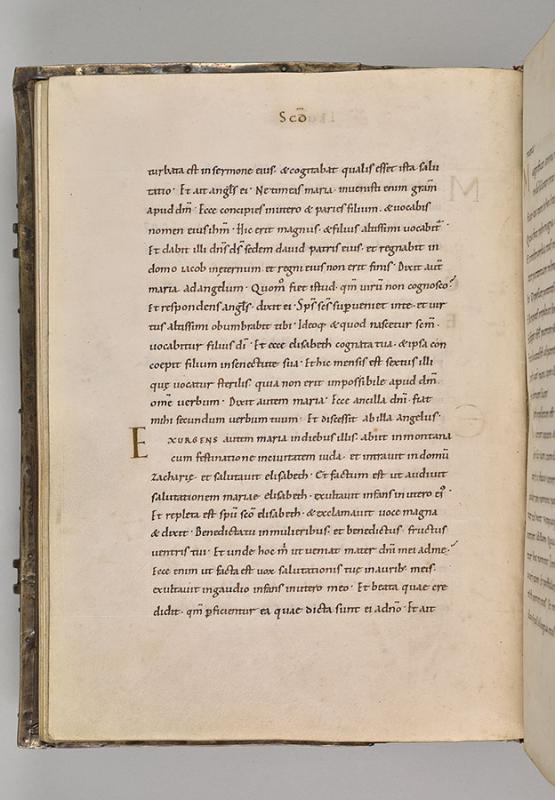 Scd̄
turbata est in sermone eius · & cogitabat qualis esset ista salu
tatio · Et ait angłs ei · Ne timeas maria · invenisti enim gram̄
apud dm̄ · Ecce concipies in utero & paries filium · & vocabis
nomen eius ihm̄ · Hic erit magnus · & filius altissimi vocabit᷑ ·
Et dabit illi dn̄s ds̄ sedem david patris eius · et regnabit in
domo iacob in eternum · et regni eius non erit finis · Dixit aut̄
maria ad angelum · Quom̊ fiet istud · qm̄ virū non cognosco?
Et respondens angłs · dixit ei · Sp̄s sc̄s sup̱veniet in te · et vir
tus altissimi obumbrabit tibi · Ideoq; & quod nascetur scm̄ ·
vocabitur filius dī · Et ecce elisabeth cognata tua · & ipsa con
coepit filium in senectute sua · Et hic mensis est sextus illi
quę vocatur sterilis · quia non erit impossibile apud dm̄
om̄e verbum · Dixit autem maria · Ecce ancilla dn̄i · fiat
mihi secundum verbum tuum · Et discessit ab illa angelus ·
EXURGENS autem maria in diebus illis · abiit in montana
cum festinatione in civitatem iuda · et intravit in domū
Zacharię · et salutavit elisabeth · Et factum est ut audivit
salutationem mariae elisabeth · exultavit infans in utero ei᷒ ·
Et repleta est spū scō elisabeth · & exclamavit voce magna
& dixit · Benedicta tu in mulieribus · et benedictus fructus
ventris tui · Et unde hoc m̄ ut veniat mater dn̄i mei ad me?
Ecce enim ut facta est vox salutationis tuę in auribꝰ meis ·
exultavit in gaudio infans in utero meo · Et beata quae cre
didit · qm̄ p̱ficientur ea quae dicta sunt ei a dn̄o · Et ait